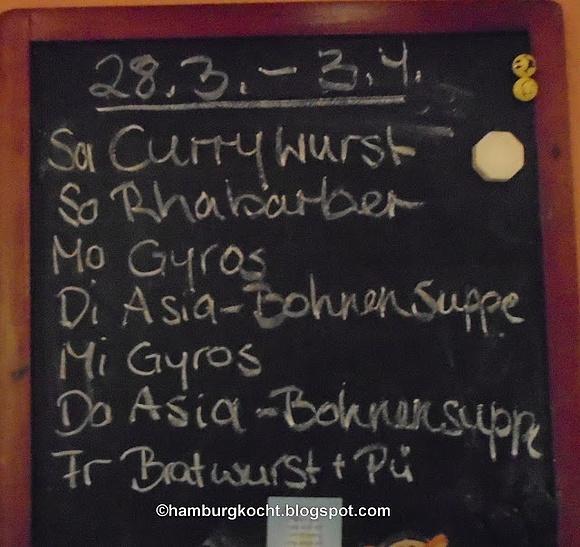 28.3. - 3.4.
Sa Currywurst
So Rhabarber
Mo Gyros
Di Asia-Bohnensuppe
Mi Gyros
Do Asia-Bohnensuppe
Fr Bratwurst + Pü
©hamburgkocht.blogspot.com